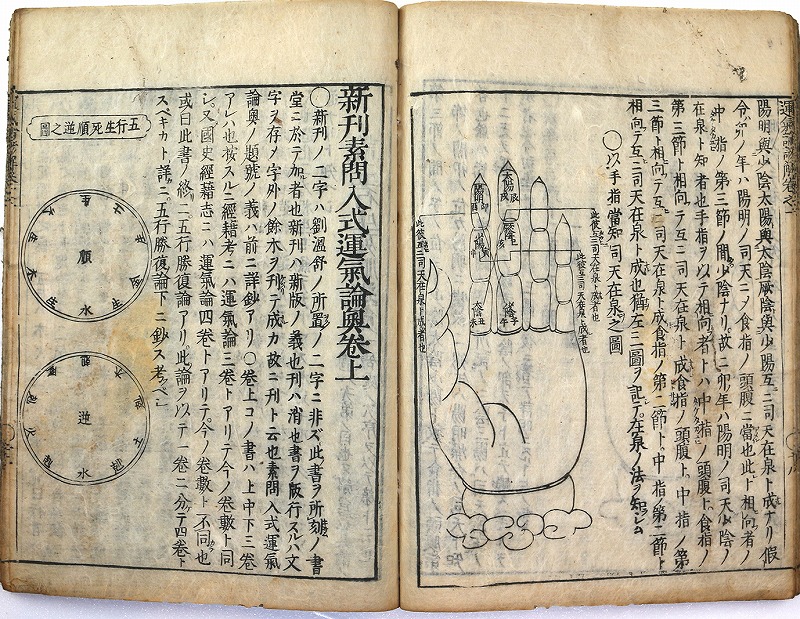 陽明與少陰太陽與太陰厥陰與少陽互ニ司天在泉ト成ナリ假
令ハ卯ノ年ハ陽明ノ司天ニメ食指ノ頭腹ニ當也此ト相向者ノ
中指ノ第三節ノ間少陰ナリ故ニ卯年ハ陽明ノ司天少陰ノ
在泉ト知者也手指ヲ以テ相向者トハ中指ノ頭腹ト食指ノ
第三節ト相向テ互ニ司天在泉ト成食指ノ頭腹ト中指ノ第
三節ト相向テ互ニ司天在泉ト成食指ノ第二節ト中指ノ第二節ト
相向テ互ニ司天在泉ト成也猶左ニ圖ヲ記テ在泉ノ法ヲ知シム
〇以手指當知司天在泉之圖
此彼互ニ司天在泉ト成者也
此彼互ニ司天在泉ト成者也
太陽辰戌
厥陰
少陰子午
陽明卯酉
少陽寅
太陰丑未
此彼互ニ司天在泉ト成者也
新刊素問入式運氣論奧卷上
〇新刊ノ二字ハ劉溫舒ノ所置ノ二字ニ非ズ此書ヲ所刻ノ書
堂ニ於テ加者也新刊ハ新版ノ義也刊ハ消也書ヲ版行スルハ文
字ヲ存メ字外ノ餘木ヲ刊テ成カ故ニ刊ト云也素問入式運氣
論奧ノ題號ノ義ハ前ニ詳鈔アリ〇卷上コノ書ハ上中下三卷
アレハ也按スルニ經籍考ニハ運氣論三卷トアリテ今ノ卷數ト同
シ又國史經籍志ニハ運氣論四卷トアリテ今ノ卷數ト不同也
或曰此書ノ終ニ五行勝復論アリ此論ヲ以テ一卷ニ分テ四卷ト
スベキカト詳ニ五行勝復論下ニ鈔ス考フベシ
五行生死順逆之圖
順
水
逆
水